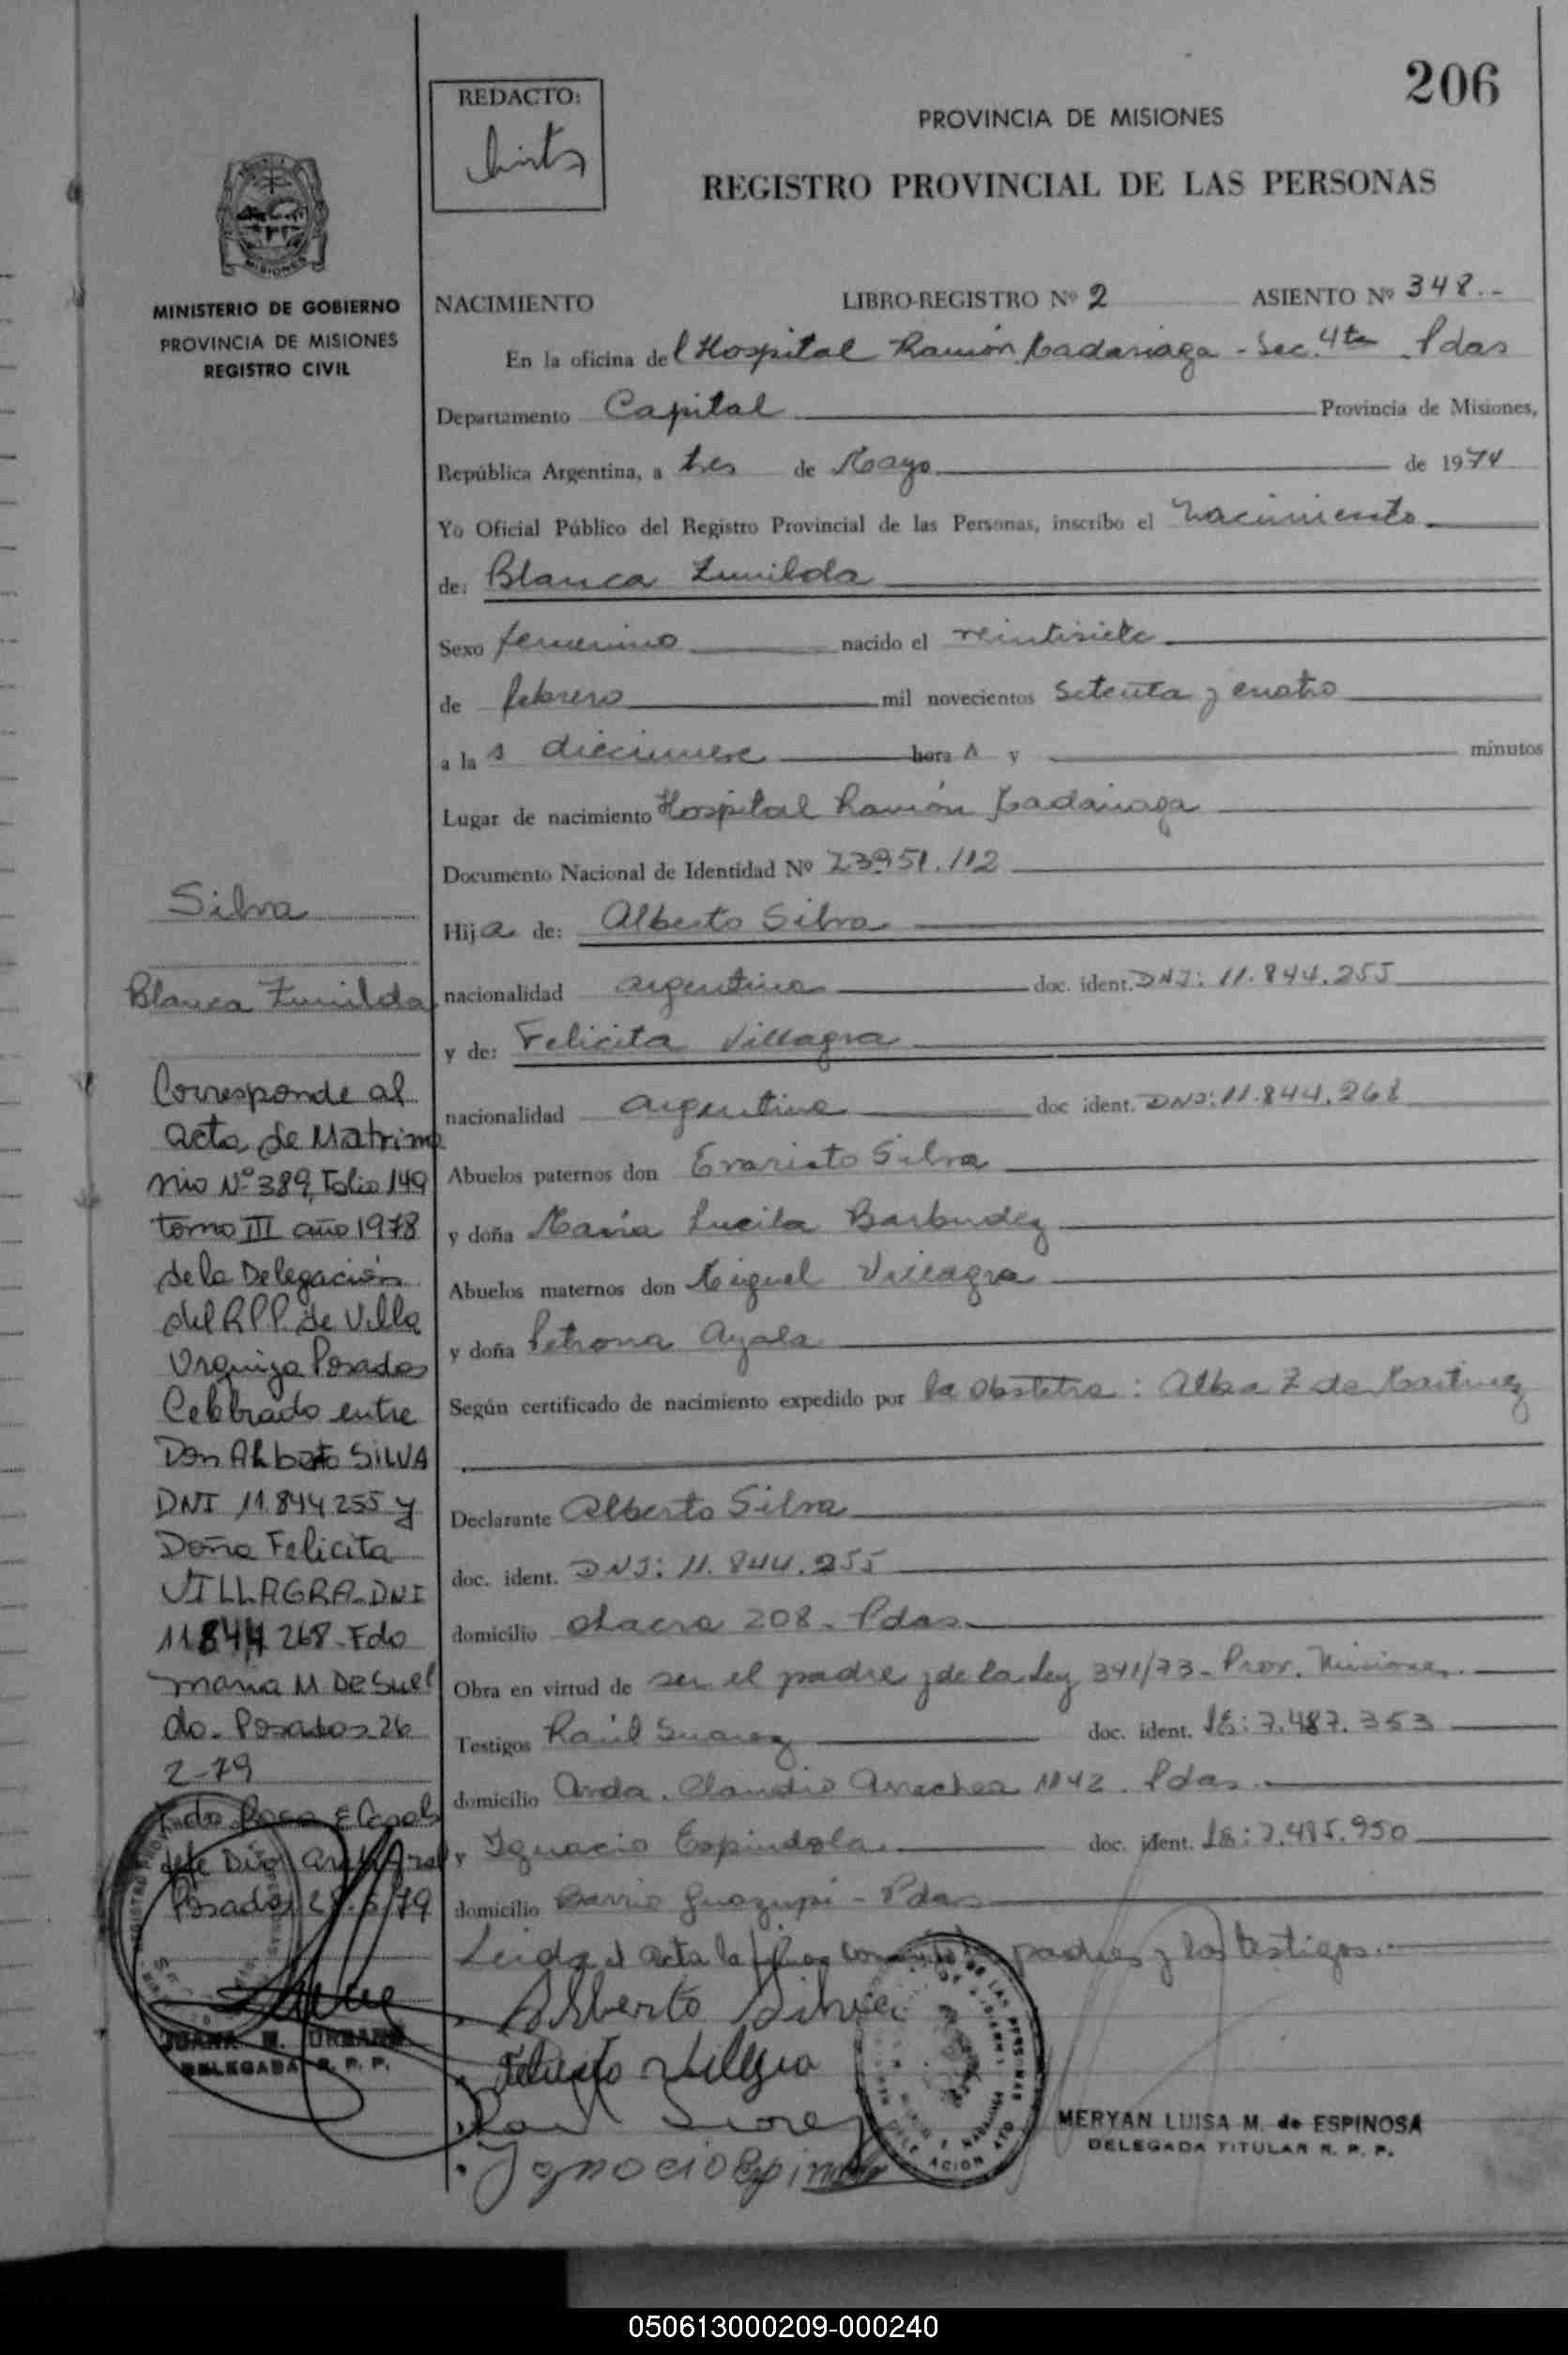 206
REDACTO:
PROVINCIA DE MISIONES
REGISTRO PROVINCIAL DE LAS PERSONAS
MISIONES
MINISTERIO DE GOBIERNO
PROVINCIA DE MISIONES
REGISTRO CIVIL
NACIMIENTO LIBRO-REGISTRO Nº 2 ASIENTO Nº 348.-
En la oficina del Hospital Ramón Madariaga - Sec. 4ta Pdas
Departamento Capital Provincia de Misiones,
República Argentina, a tres de Mayo de 1974
Yo Oficial Público del Registro Provincial de las Personas, inscribo el Nacimiento
de: Blanca Zunilda
Sexo femenino nacido el veintisiete
de febrero mil novecientos setenta y cuatro
a las diecinueve hora s y minutos
Lugar de nacimiento Hospital Ramón Madariaga
Documento Nacional de Identidad Nº 23.951.112
Hija de: Alberto Silva
nacionalidad argentina doc. ident. DNI: 11.844.255
y de: Felicita Villagra
nacionalidad argentina doc ident. DNI: 11.844.268
Abuelos paternos don Evaristo Silva
y doña María Lucila Barbudez
Abuelos maternos don Miguel Villagra
y doña Petrona Ayala
Según certificado de nacimiento expedido por la Obstetra: Alba Z de Martinez
Declarante Alberto Silva
doc. ident. DNI: 11.844.255
domicilio chacra 208 - Pdas
Obra en virtud de ser el padre y de la Ley 341/73 - Prov. Misiones
Testigos Raúl Suarez doc. ident. LE: 7.487.353
domicilio Avda. Claudio Arrechea 1142 - Pdas
y Ignacio Espindola doc. ident. LE: 7.485.950
domicilio Barrio Guazupi - Pdas
Leida el acta la padres y los testigos.
Alberto Silva
Villagra
Raul Suarez
Ignacio Espindola
MERYAN LUISA M. de ESPINOSA
DELEGADA TITULAR R. P. P.
Silva
Blanca Zunilda
Corresponde al
acta de Matrimo
nio Nº 389, Folio 149
tomo III año 1978
de la Delegación
del R.P.P. de Villa
Urquiza Posadas
Celebrado entre
Don Alberto SILVA
DNI 11.844255 y
Doña Felicita
VILLAGRA - DNI
11844268 - Fdo
maria M. De Suel
do - Posadas 26
2-79
Posadas
JUANA M. URBANO
DELEGADA R. P. P.
050613000209-000240